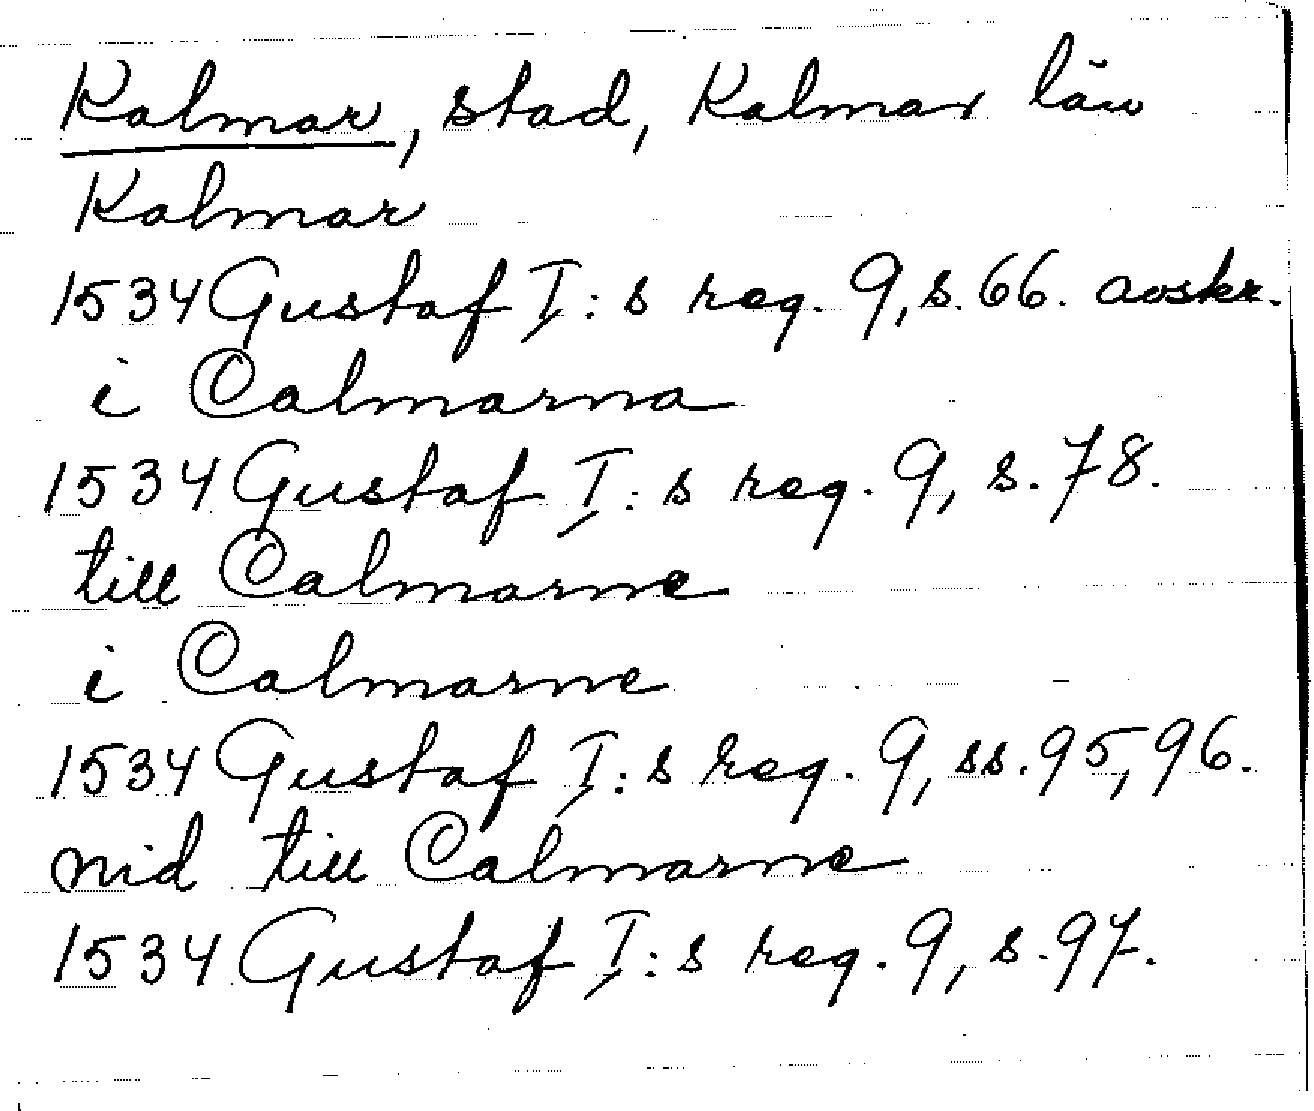 Kalmar, stad, Kalmar län
Kalmar
1534 Gustaf I:s reg. 9, s. 66. avskr.
i Calmarna
1534 Gustaf I:s reg. 9, s. 78.
till Calmarne
i Calmarne
1534 Gustaf I:s reg. 9, ss. 95, 96.
nid till Calmarne
1534 Gustaf I:s reg. 9, s. 97.